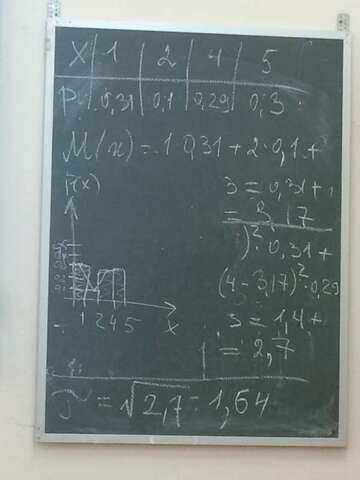 X | 1 | 2 | 4 | 5
P | 0,31 | 0,1 | 0,29 | 0,3
M(x) = 1·0,31 + 2·0,1 +
3 = 0,31 +
= 3,17
)²·0,31 +
(4 - 3,17)²·0,29
3 = 1,4 +
= 2,7
1 2 4 5 X
= √2,7 = 1,64